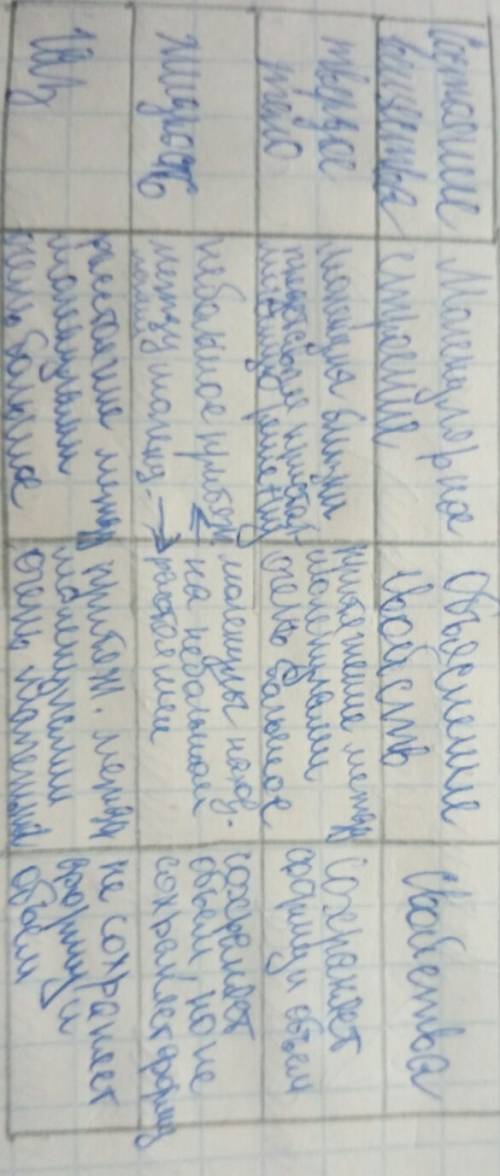 Состояние
вещества
Молекулярное
строение
Объяснение
свойств
Свойства
твёрдое
тело
молекулы близки
притяжение между
молекулами
очень большое
Сохраняет
форму и объём
жидкость
небольшое притяж
между молекул.
молекулы наход.
на небольшом
расстоянии
сохраняет
объём но не
сохраняет форму
газ
расстояние между
молекулами
очень большое
притяж. между
молекулами
очень маленький
не сохраняет
форму и
объём